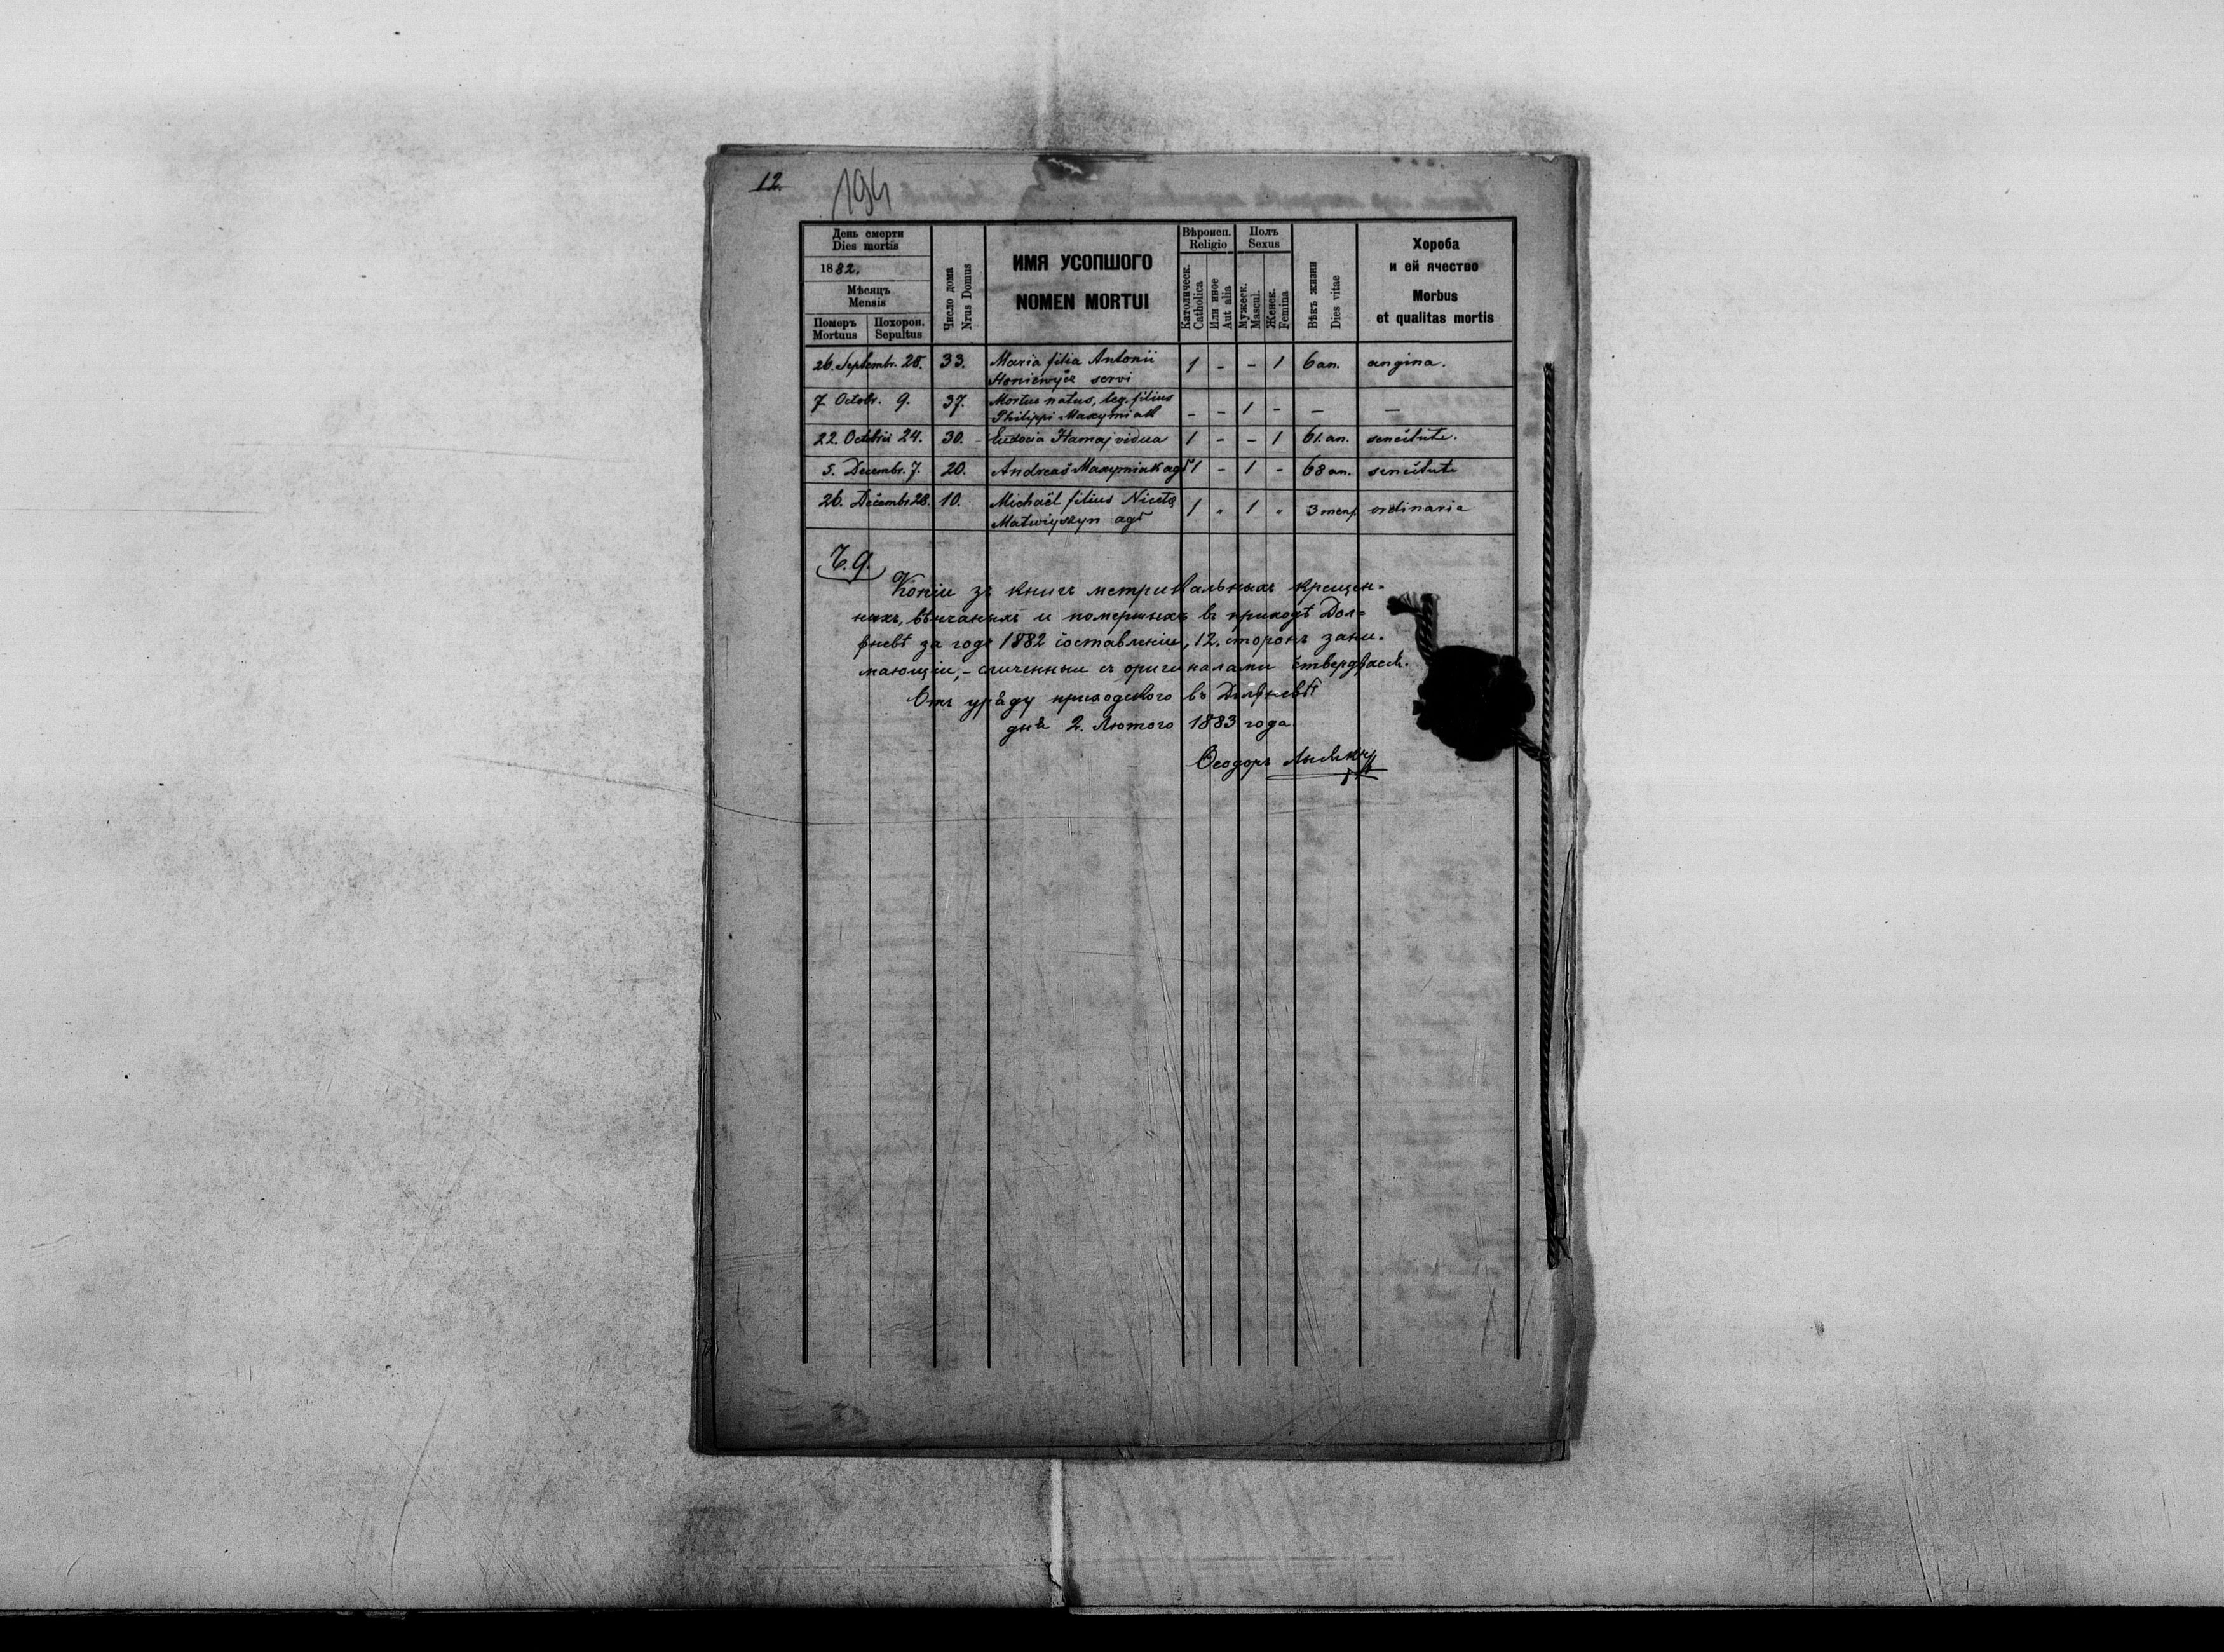 12.
194
День смерти
Dies mortis
1882.
Мѣсяцъ
Mensis
Померъ Похорон.
Mortuus Sepultus
Число дома
Nrus Domus
ИМЯ УСОПШОГО
NOMEN MORTUI
Вѣроисп.
Religio
Католическ.
Catholica
Или иное
Aut alia
Полъ
Sexus
Мужеск.
Mascul.
Женск.
Femina
Вѣкъ жизни
Dies vitae
Хороба
и ей ячество
Morbus
et qualitas mortis
26. Septembr. 28. 33. Maria filia Antonii 1 - - 1 6 an. angina.
servi
7. Octobr. 9. 37. Mortus natus, leg. filius - - 1 - — —
Philippi Maxymiak
22. Octobris 24. 30. Eudocia Hamaj vidua 1 - - 1 61. an. senectute.
5. Decembr. 7. 20. Andreas Maxymiak agr 1 - 1 - 68 an. senectute
26. Decembr 28. 10. Michaël filius Nicetæ 1 " 1 " 3 mens. ordinaria
Matwiyszyn agr
Ч. 9.
Копіи зъ книгъ метрикальныхъ крещен-
ныхъ, вѣнчаныхъ и помершыхъ въ приходѣ Дол-
за годъ 1882 составленіи, 12. сторонъ зани-
мающіи, - сличенныи съ оригиналами
Отъ уряду приходского въ
дня 2. Лютого 1883 года
Ѳеодоръ